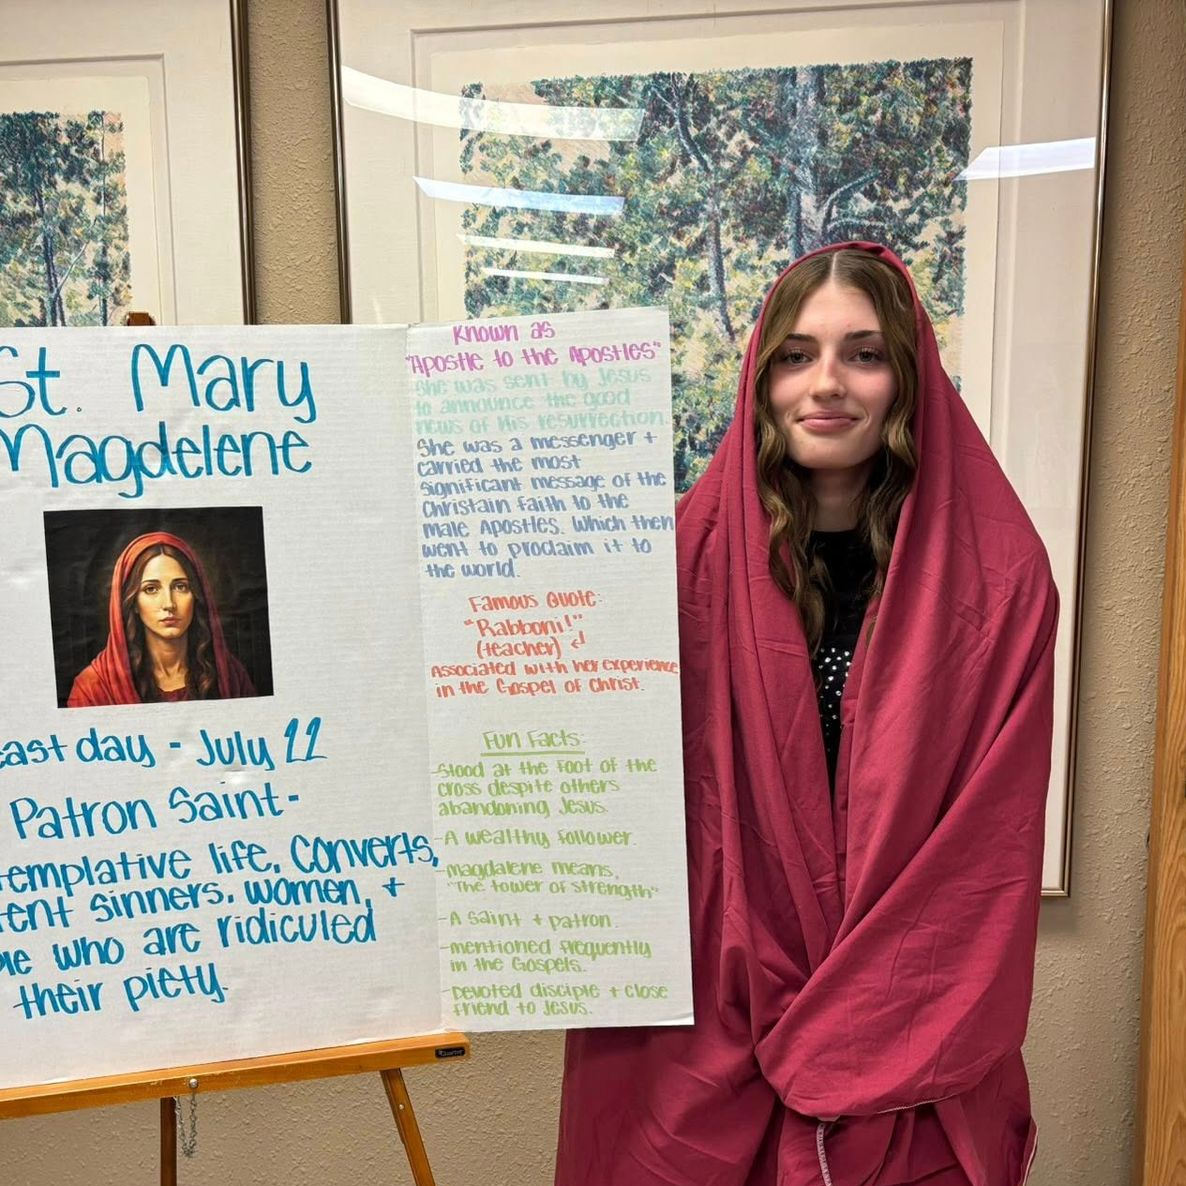 St. Mary
Magdelene
east day - July 22
Patron Saint -
templative life, converts,
tent sinners, women, +
ple who are ridiculed
their piety.
Known as
"Apostle to the Apostles"
She was sent by Jesus
to announce the good
news of His resurrection.
She was a messenger +
carried the most
significant message of the
Christain faith to the
male Apostles. Which then
went to proclaim it to
the world.
Famous Quote:
"Rabboni!"
(teacher)
Associated with her experience
in the Gospel of Christ.
Fun Facts:
-Stood at the foot of the
cross despite others
abandoning Jesus.
-A wealthy follower.
-magdalene means,
"The tower of strength"
-A saint + patron.
-mentioned frequently
in the Gospels.
-Devoted disciple + close
friend to Jesus.